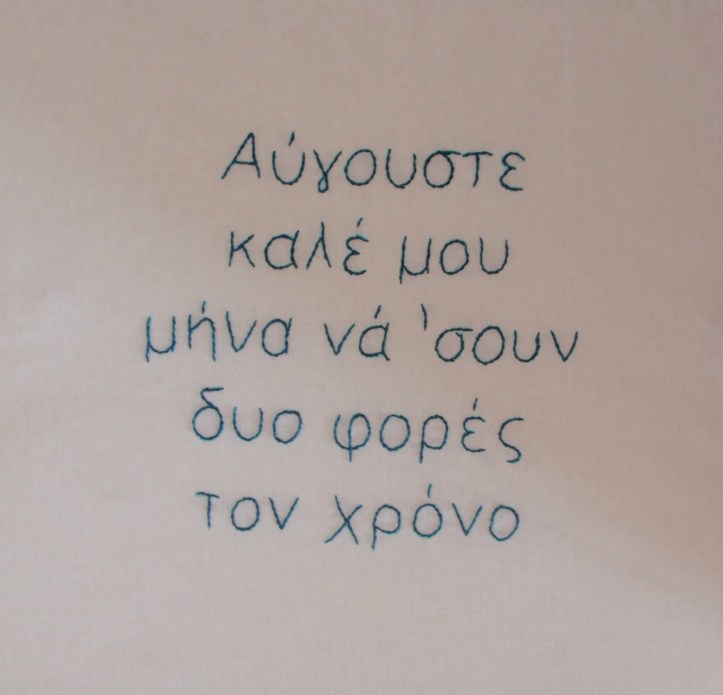 Αύγουστε
καλέ μου
μήνα νά 'σουν
δυο φορές
τον χρόνο